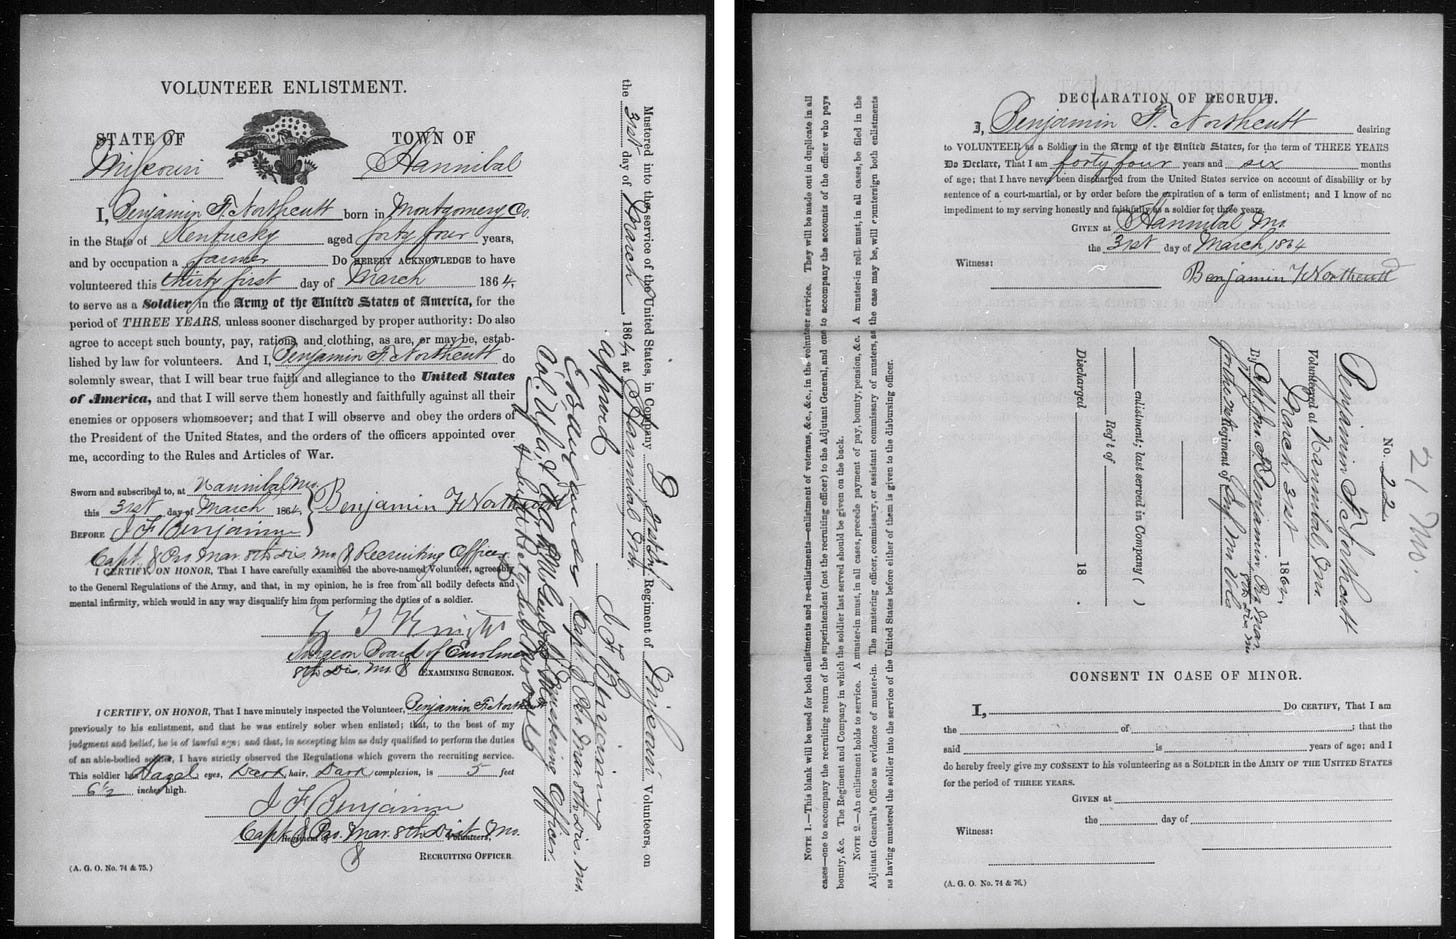 VOLUNTEER ENLISTMENT.
STATE OF TOWN OF
Missouri Hannibal
I, Benjamin F. Northcutt born in Montgomery Co.
in the State of Kentucky aged forty four years,
and by occupation a farmer Do HEREBY ACKNOWLEDGE to have
volunteered this thirty first day of March 1864,
to serve as a Soldier in the Army of the United States of America, for the
period of THREE YEARS, unless sooner discharged by proper authority: Do also
agree to accept such bounty, pay, rations, and clothing, as are, or may be, estab-
lished by law for volunteers. And I, Benjamin F. Northcutt do
solemnly swear, that I will bear true faith and allegiance to the United States
of America, and that I will serve them honestly and faithfully against all their
enemies or opposers whomsoever; and that I will observe and obey the orders of
the President of the United States, and the orders of the officers appointed over
me, according to the Rules and Articles of War.
Sworn and subscribed to, at Hannibal Mo.
this 31st day of March 1864, Benjamin F Northcutt
BEFORE J F Benjamin
Capt & Pro. Mar. 8th Dis. Mo & Recruiting Officer
I CERTIFY, ON HONOR, That I have carefully examined the above-named Volunteer, agreeably
to the General Regulations of the Army, and that, in my opinion, he is free from all bodily defects and
mental infirmity, which would in any way disqualify him from performing the duties of a soldier.
Surgeon Board of Enrolment
8th Dis. Mo. EXAMINING SURGEON.
I CERTIFY, ON HONOR, That I have minutely inspected the Volunteer, Benjamin F. Northcutt
previously to his enlistment, and that he was entirely sober when enlisted; that, to the best of my
judgment and belief, he is of lawful age; and that, in accepting him as duly qualified to perform the duties
of an able-bodied soldier, I have strictly observed the Regulations which govern the recruiting service.
This soldier has Hazel eyes, Dark hair, Dark complexion, is 5 feet
6 1/2 inches high.
J F Benjamin
Capt & Pro. Mar. 8th Dist. Mo.
Regiment of Volunteers,
RECRUITING OFFICER
(A. G. O. No. 74 & 75.)
Mustered into the service of the United States, in Company Regiment of Missouri Volunteers, on
the 31st day of March, 1864, at Hannibal Mo.
approved
J F Benjamin
Capt & Pro Mar 8th Dis. Mo.
Mustering Officer
DECLARATION OF RECRUIT.
I, Benjamin F. Northcutt desiring
to VOLUNTEER as a Soldier in the Army of the United States, for the term of THREE YEARS
Do Declare, That I am forty four years and six months
of age; that I have never been discharged from the United States service on account of disability or by
sentence of a court-martial, or by order before the expiration of a term of enlistment; and I know of no
impediment to my serving honestly and faithfully as a soldier for three years.
GIVEN at Hannibal Mo.
the 31st day of March 1864
Witness: Benjamin F Northcutt
21 Mo.
No. 22
Benjamin F. Northcutt
Volunteered at Hannibal Mo
March 31st 1864,
By Capt J. F. Benjamin Pro. Mar.
8th Dis Mo
Regiment of
enlistment; last served in Company ( )
Reg't of
Discharged 18 .
CONSENT IN CASE OF MINOR.
I, Do CERTIFY, That I am
the of ; that the
said is years of age; and I
do hereby freely give my CONSENT to his volunteering as a SOLDIER in the ARMY OF THE UNITED STATES
for the period of THREE YEARS.
GIVEN at
the day of
Witness:
(A. G. O. No. 74 & 76.)
NOTE 1.—This blank will be used for both enlistments and re-enlistments—enlistment of veterans, &c., &c., in the volunteer service. They will be made out in duplicate in all
cases—one to accompany the recruiting return of the superintendent (not the recruiting officer) to the Adjutant General, and one to accompany the accounts of the officer who pays
bounty, &c. The Regiment and Company in which the soldier last served should be given on the back.
NOTE 2.—An enlistment holds to service. A muster-in must, in all cases, precede payment of pay, bounty, pension, &c. A muster-in roll must, in all cases, be filed in the
Adjutant General's Office as evidence of muster-in. The mustering officer, commissary, or assistant commissary of musters, as the case may be, will countersign both enlistments
as having mustered the soldier into the service of the United States before either of them is given to the disbursing officer.